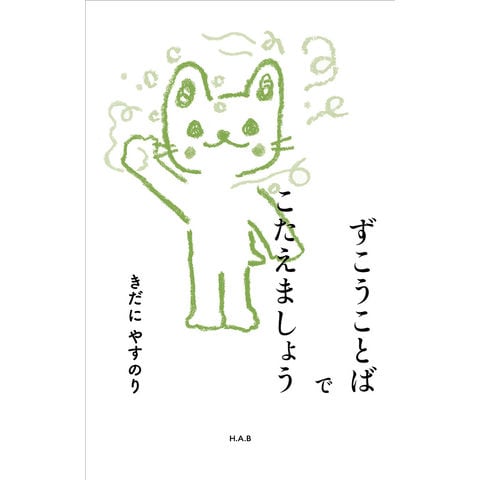 ずこうことば
で
こたえましょう
きだに やすのり
H.A.B